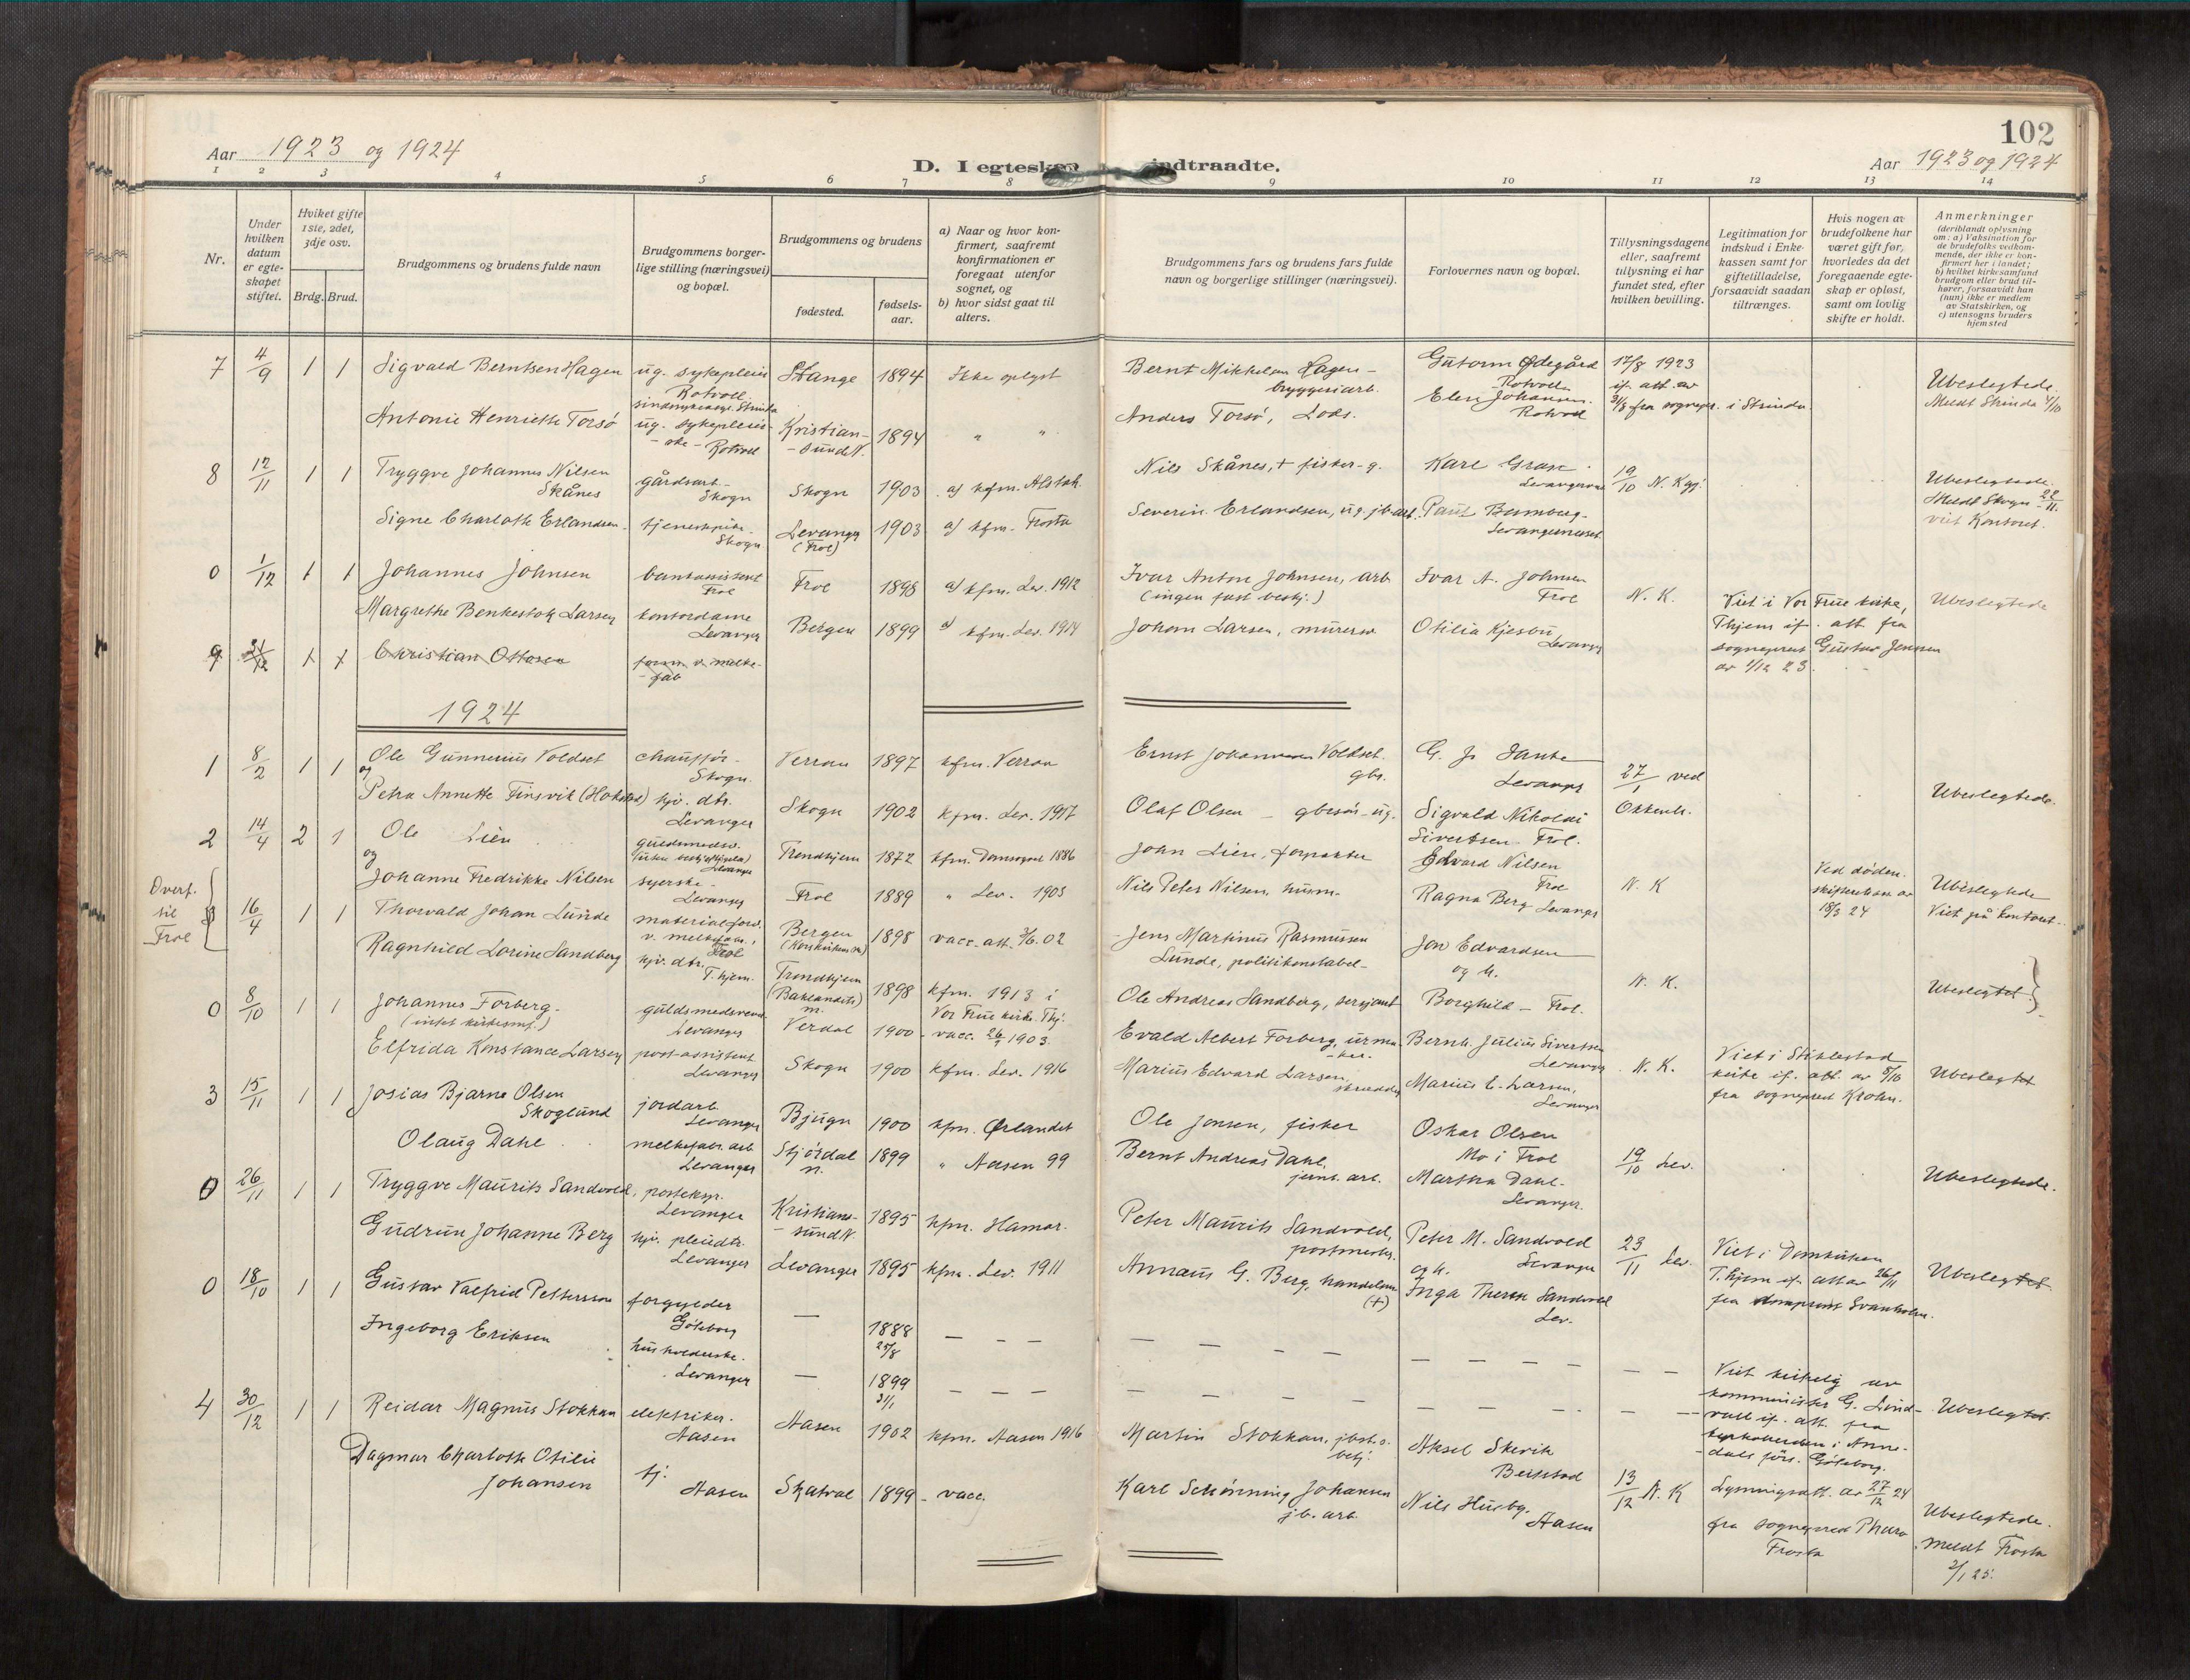 102
Aar 1923 og 1924
D. I egteskap indtraadte.
Aar 1923 og 1924
1 2 3 4 5 6 7 8 9 10 11 12 13 14
Nr.
Under hvilken datum er egteskapet stiftet.
Hviket gifte 1ste, 2det, 3dje osv.
Brdg. Brud.
Brudgommens og brudens fulde navn
Brudgommens borgerlige stilling (næringsvei) og bopæl.
Brudgommens og brudens
fødested.
fødselsaar.
a) Naar og hvor konfirmert, saafremt konfirmationen er foregaat utenfor sognet, og
b) hvor sidst gaat til alters.
Brudgommens fars og brudens fars fulde navn og borgerlige stillinger (næringsvei).
Forlovernes navn og bopæl.
Tillysningsdagene eller, saafremt tillysning ei har fundet sted, efter hvilken bevilling.
Legitimation for indskud i Enkekassen samt for giftetilladelse, forsaavidt saadan tiltrænges.
Hvis nogen av brudefolkene har været gift før, hvorledes da det foregaaende egteskap er opløst, samt om lovlig skifte er holdt.
Anmerkninger (deriblant oplysning om: a) Vaksination for de brudefolks vedkommende, der ikke er konfirmert her i landet; b) hvilket kirkesamfund brudgom eller brud tilhører, forsaavidt han (hun) ikke er medlem av Statskirken, og c) utensogns bruders hjemsted
7 4/9 1 1 Sigvald Berntsen Hagen ug. sykepleier Rotvoll sindssykeasyl. Strinda Stange 1894 Ikke oplyst Bernt Mikkelsen Hagen - bryggeriarb. Gutorm Ødegård Rotvoll 17/8 1923 if. att. av 31/8 fra sognepr. i Strinda. Ubeslegtede. Meldt Strinda 4/10
Antonie Henriette Torsö ug. sykepleier-ske - Rotvoll Kristian-sund N. 1894 " " Anders Torsö, Lods. Elen Johansen. Rotvol
8 12/11 1 1 Tryggve Johannes Nilsen Skånes gårdsarb. Skogn Skogn 1903 a) kfm. Alstah. Nils Skånes, + fisker-g. Karl Grase 19/10 N. Kgj. Ubeslegtede. Meldt Skogn 22/11. viet Kontoret.
Signe Charlotte Erlandsen tjenestpike. Skogn Levanger (Frol) 1903 a) kfm. Frosta Severin Erlandsen, ug. jb.arb. Paul Levangernesset
0 1/12 1 1 Johannes Johnsen bankassistent Frol Frol 1898 a) kfm. Lev. 1912 Ivar Anton Johnsen, arb (ingen fast beskj.) Ivar A. Johnsen Frol N. K. Viet i Vor Frue kirke, Thjem if. att. fra sogneprest Gustav Jensen av 1/12 23. Ubeslegtede
Margrethe Benkestok Larsen kontordame Levanger Bergen 1899 a) kfm. Lev. 1914 Johan Larsen, murersv. Otilia Kjesbu Levanger
9 1 1 Christian Ottosen form. v. melke-fab
1924
1 8/2 1 1 Ole Gunnerius Voldset chauffør. Skogn. Verran 1897 kfm. Verran Ernst Johannesen Voldset. gbr. G. Jo Levanger 27/1 ved Okkenh. Ubeslegtede.
og
Petra Annette Finsvik (Hokstad) hjv. dtr. Levanger Skogn 1902 kfm. Lev. 1917 Olaf Olsen - gbesør-ug. Sigvald Nikolai Sivertsen Frol.
2 14/4 2 1 Ole Lien guldsmedsv. Levanger Trondhjem 1872 kfm. Domsognet 1886 John Lien, forpakter Edvard Nilsen Frol N. K Ved døden. skifteretten av 18/3 24 Ubeslegtede Viet på kontoret.
og
Johanne Fredrikke Nilsen syerske - Levanger Frol 1889 " Lev. 1905 Nils Peter Nilsen, husm- Ragna Berg Levanger
Overf. til Frol
16/4 1 1 Thorvald Johan Lunde materialforv. v. melkefabr., Frol Bergen (Korskirken m) 1898 vacc. att. 3/6. 02 Jens Martinus Rasmussen Lunde, politikonstabel- Jon Edvardsen og h. N. K. Ubeslegtet.
Ragnhild Lorine Sandberg hjv. dtr. T.hjem. Trondhjem (Baklandets) m. 1898 kfm. 1913 i Vor Frue kirke. Thj. Ole Andreas Sandberg, sersjant Borghild - Frol.
0 8/10 1 1 Johannes Forberg. (intet kirkesamf.) guldsmedsvend Levanger Verdal 1900 - vacc. 26/9 1903. Evald Albert Forberg, urma-ker. Bernh. Julius Sivertsen Levanger N. K. Viet i Stiklestad kirke if. att. av 8/10 fra sogneprest Krohn. Ubeslegtet
Elfrida Konstance Larsen post-assistent Levanger Skogn 1900 kfm. Lev. 1916 Marius Edvard Larsen, skrædder Marius E. Larsen, Levanger
3 15/11 1 1 Josias Bjarne Olsen Skoglund jordarb. Levanger Bjugn 1900 kfm. Ørlandet Ole Jonsen, fisker Oskar Olsen Mo i Frol 19/10 Lev. Ubeslegtede.
Olaug Dahl melkefabr. arb Levanger Stjördal n. 1899 " Aasen 99 Bernt Andreas Dahl, jernb. arb. Martha Dahl. Levanger.
0 26/11 1 1 Tryggve Maurits Sandvold, posteksp. Levanger Kristian-sund N. 1895 kfm. Hamar. Peter Maurits Sandvold, postmester. Peter M. Sandvold Levanger og h. 23/11 Lev. Viet i Domkirken T.hjem if. att av 26/11 fra Svanholm. Ubeslegtet
Gudrun Johanne Berg hjv. pleiedtr. Levanger Levanger 1895 kfm. Lev. 1911 Annæus G. Berg, handelsm (+) Inga Therese Sandvold Lev.
0 18/10 1 1 Gustav Valfrid Pettersson forgylder Göteborg - 1888 25/8 - - - Viet kirkelig av komminister G. Lind-vall if. att. fra kyrkoherden i Anne-dals förs. Göteborg. Ubeslegtet.
Ingeborg Eriksen husholderske. Levanger - 1899 31/1 - - -
4 30/12 1 1 Reidar Magnus Stokkan elektriker. Aasen Aasen 1902 kfm. Aasen 1916 Martin Stokkan, Aksel Skevik Beitstad 13/12 N. K Lysningsatt. av 27/12 24 fra sogneprest Frosta Ubeslegtede. meldt Frosta 2/1 25.
Dagmar Charlotte Otilie Johansen tj. Aasen Skatval 1899 - vacc. Karl Schönning Johansen jb. arb. Nils Husby. Aasen